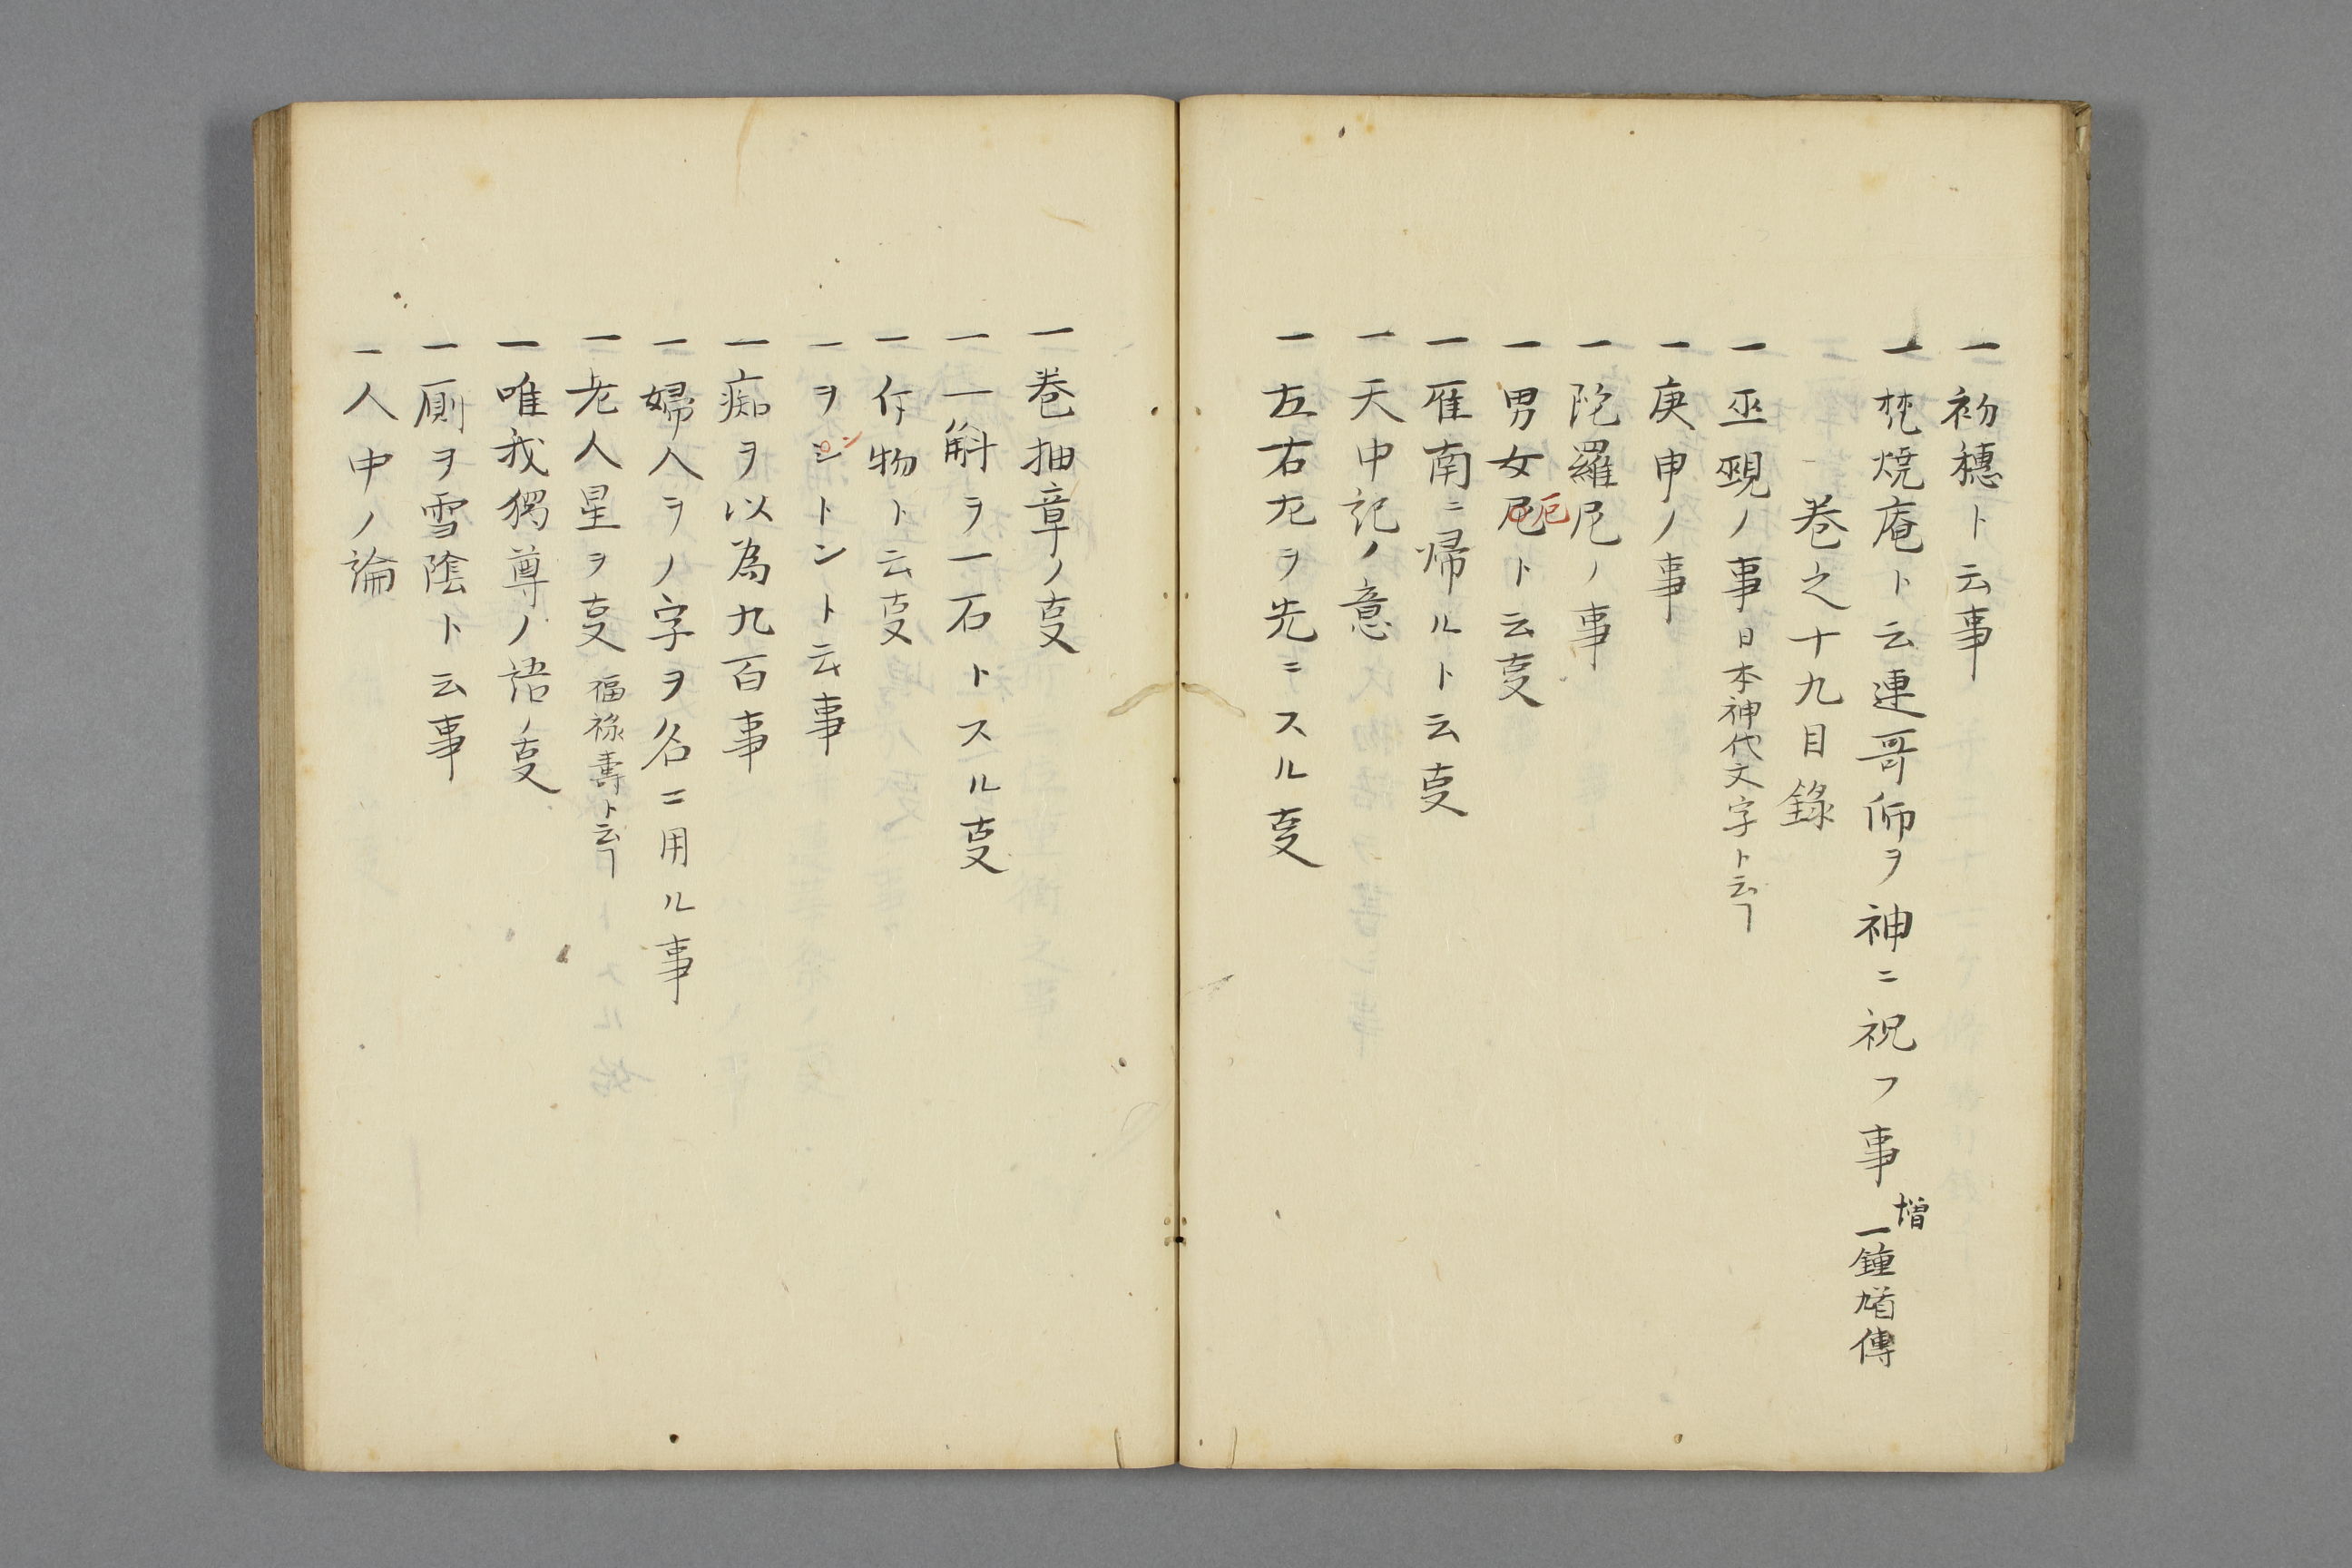 一初穗ト云事
一梵燒庵ト云連哥師ヲ神ニ祝フ事
増
一鍾馗傳
巻之十九目録
一巫覡ノ事日本神代文字ト云ヿ
一庚申ノ事
一陀羅尼ノ事
一男女厄ト云㕝
厄
一雁南ニ帰ルト云㕝
一天中記ノ意
一左右尢ヲ先ニスル㕝
一巻抽章ノ㕝
一一斛ヲ一石トスル㕝
一作物ト云㕝
一ヲシトント云事
ン
一痴ヲ以為九百事
一婦人ヲノ字ヲ名ニ用ル事
一老人星ヲ㕝福祿壽ト云ヿ
一唯我獨尊ノ語ノ㕝
一厠ヲ雪陰ト云事
一人中ノ論